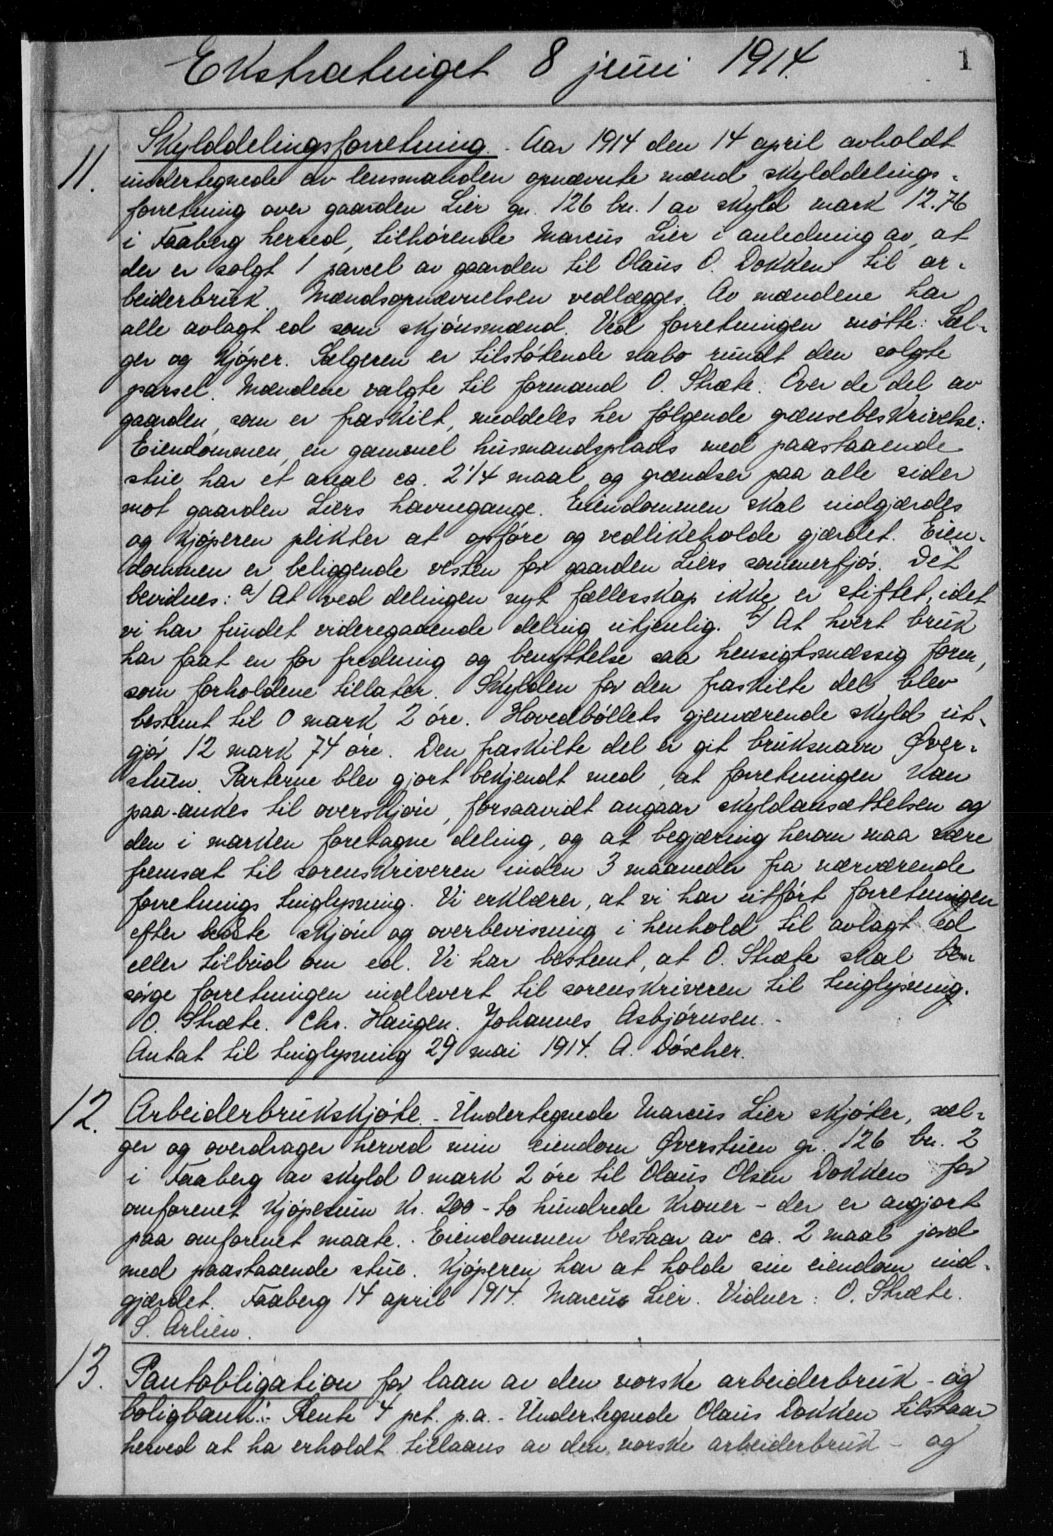 Ekstratinget 8 juni 1914.
1
11. Skylddelingsforretning. - Aar 1914 den 14 april avholdt
undertegnede av lensmanden opnævnte mænd skylddelings-
forretning over gaarden Lier gn. 126 bn. 1 av skyld mark 12.76
i Faaberg herred, tilhørende Marcus Lier i anledning av, at
der er solgt 1 parcel av gaarden til Olaus O. Dokken til ar-
beiderbruk. Mændsopnævnelsen vedlægges. Av mændene har
alle avlagt ed som skjønsmænd. Ved forretningen møtte: Sæl-
ger og kjøper. Sælgeren er tilstøtende nabo rundt den solgte
parsel. Mændene valgte til formand O. Stræte. Over de del av
gaarden, som er fraskilt, meddeles her følgende grænsebeskrivelse:
Eiendommen, en gammel husmandsplads med paastaaende
stue har et areal ca. 2 1/4 maal og grændser paa alle sider
mot gaarden Liers havnegange. Eiendommen skal indgjærdes
og kjøperen plikter at opføre og vedlikeholde gjærdet. Eien-
dommen er beliggende vesten for gaarden Liers sommerfjøs. Det
bevidnes: a/ At ved delingen nyt fællesskap ikke er stiftet, idet
vi har fundet videregaaende deling utjenlig. b/ At hvert bruk
har faat en for fredning og benyttelse saa hensigtsmæssig form,
som forholdene tillater. Skylden for den fraskilte del blev
bestemt til 0 mark 2 øre. Hovedbøllets gjenværende skyld ut-
gjør 12 mark 74 øre. Den fraskilte del er git bruksnavn Øver-
stuen. Parterne blev gjort bekjendt med, at forretningen kan
paa-ankes til overskjøn, forsaavidt angaar skyldansættelsen og
den i marken foretagne deling, og at begjæring herom maa være
fremsat til sorenskriveren inden 3 maaneder fra nærværende
forretnings tinglysning. Vi erklærer, at vi har utført forretningen
efter bedste skjøn og overbevisning i henhold til avlagt ed
eller tilbud om ed. Vi har bestemt, at O. Stræte skal be-
sørge forretningen indlevert til sorenskriveren til tinglysning.
O. Stræte. Chr. Haugen. Johannes Asbjørnsen. -
Antat til tinglysning 29 mai 1914. A. Døscher.
12. Arbeiderbrukskjøte. - Undertegnede Marcus Lier skjøter, sæl-
ger og overdrager herved min eiendom Øverstuen gn. 126 bn. 2
i Faaberg av skyld 0 mark 2 øre til Olaus Olsen Dokken for
omforenet kjøpesum kr. 200 - to hundrede kroner - der er avgjort
paa omforenet maate. - Eiendommen bestaar av ca. 2 maal jord
med paastaaende stue. Kjøperen har at holde sin eiendom ind-
gjærdet. Faaberg 14 april 1914. Marcus Lier. Vidner: O. Stræte.
S. Arlien.
13. Pantobligation for laan av den norske arbeiderbruk - og
boligbank: - Rente 4 pct. p.a. - Undertegnede Olaus Dokken tilstaar
herved at ha erholdt tillaans av den norske arbeiderbruk - og